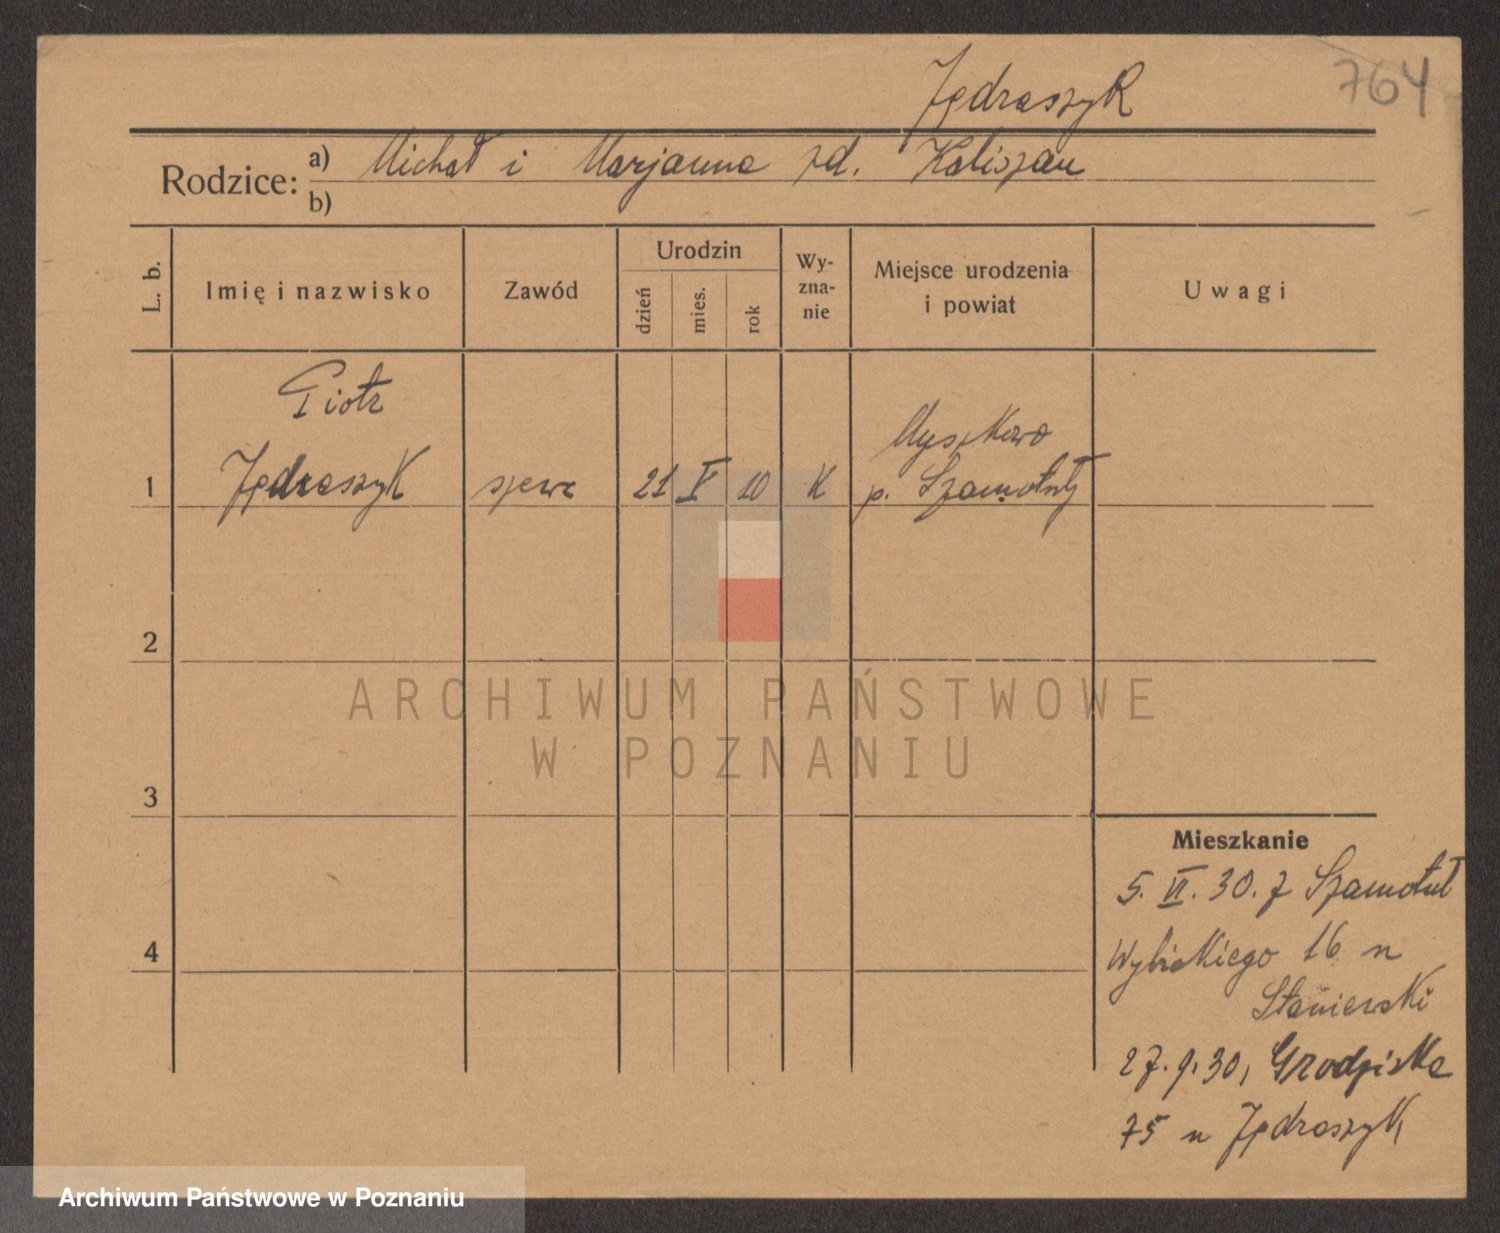 764
Jędraszyk
Rodzice: a) Michał i Marjanna zd. Kaliszan
b)
L. b.
Imię i nazwisko
Zawód
Urodzin
dzień
mies.
rok
Wy-
zna-
nie
Miejsce urodzenia
i powiat
Uwagi
Piotr
Myszkowo
1 Jędraszyk szewc 21 V 10 K p. Szamotuły
2
3
4
ARCHIWUM PAŃSTWOWE
W POZNANIU
Mieszkanie
5. VI. 30. z Szamotuł
Wybickiego 16 u
27. 9. 30, Grodziska
75 u Jędraszyk
Archiwum Państwowe w Poznaniu